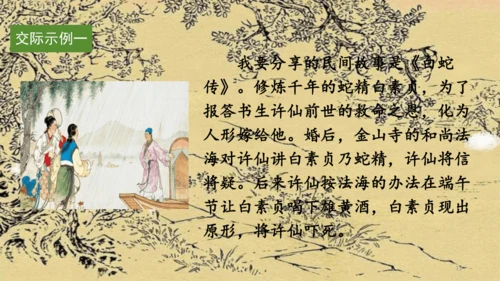 交际示例一
我要分享的民间故事是《白蛇
传》。修炼千年的蛇精白素贞，为了
报答书生许仙前世的救命之恩，化为
人形嫁给他。婚后，金山寺的和尚法
海对许仙讲白素贞乃蛇精，许仙将信
将疑。后来许仙按法海的办法在端午
节让白素贞喝下雄黄酒，白素贞现出
原形，将许仙吓死。